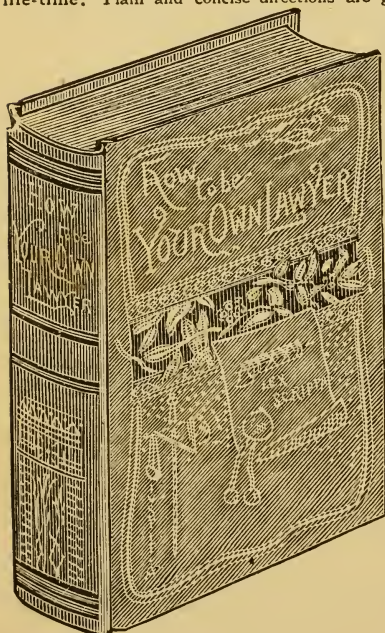 life-time. Plain and concise directions are g
HOW
to be
YOUR OWN
LAWYER
How
to be
YOUR OWN LAWYER
LEX
SCRIPTA